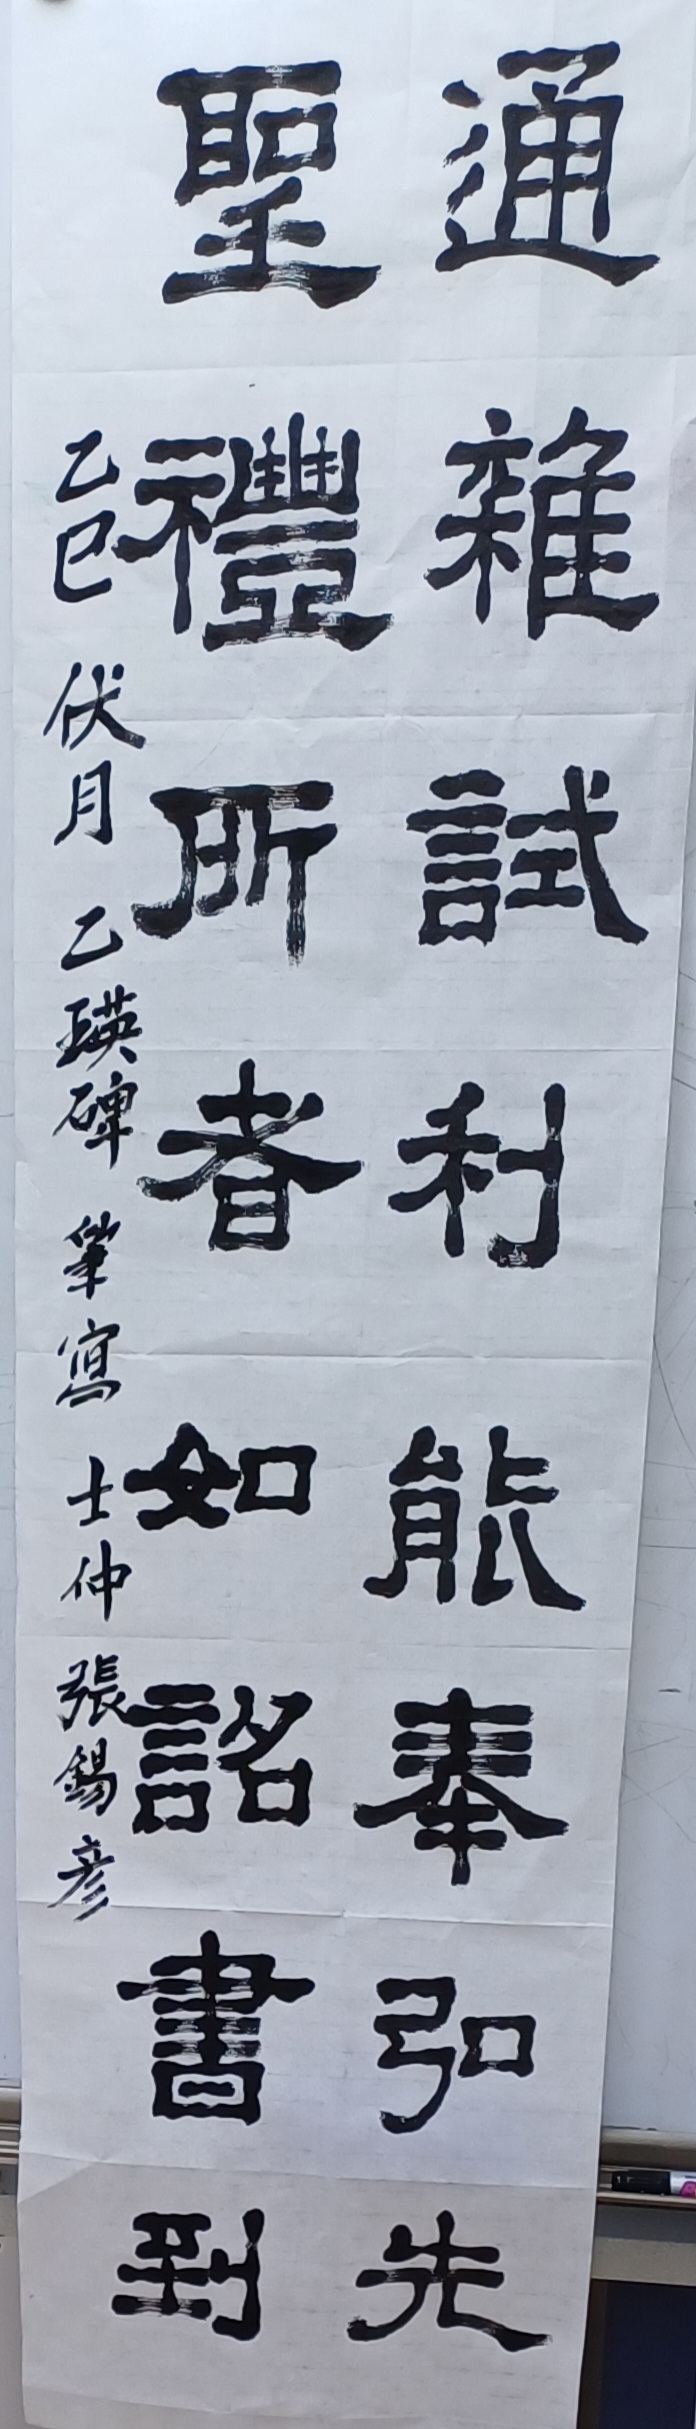 通雜試利能奉弘先
聖禮所者如詔書到
乙巳 伏月 乙瑛碑 筆寫 士仲 張錫彥